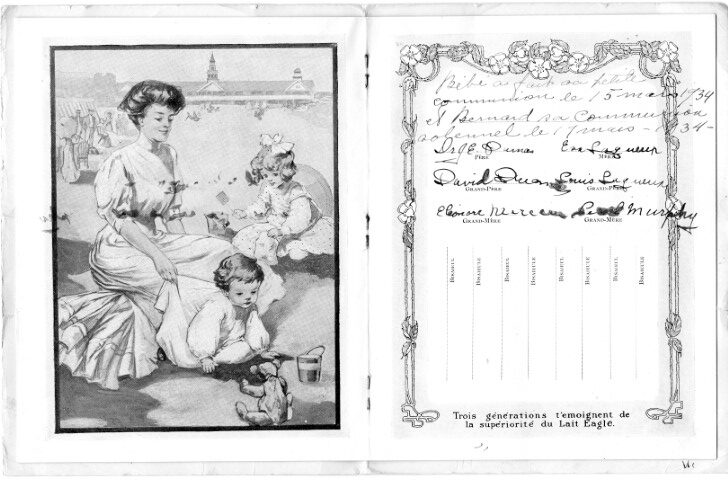 Bébé a fait sa petite
communion le 15 mars 1934
et Bernard sa Communion
solennel le 17 mars - 1934 -
Eva Lagueux
PÈRE MÈRE
David Louis Lagueux
GRAND-PÈRE GRAND-PÈRE
Eleonore Murphy
GRAND-MÈRE GRAND-MÈRE
BISAIEUL
BISAIEULE
BISAIEUL
BISAIEULE
BISAIEUL
BISAIEULE
BISAIEUL
BISAIEULE
Trois générations t'emoignent de
la supériorité du Lait Eagle.